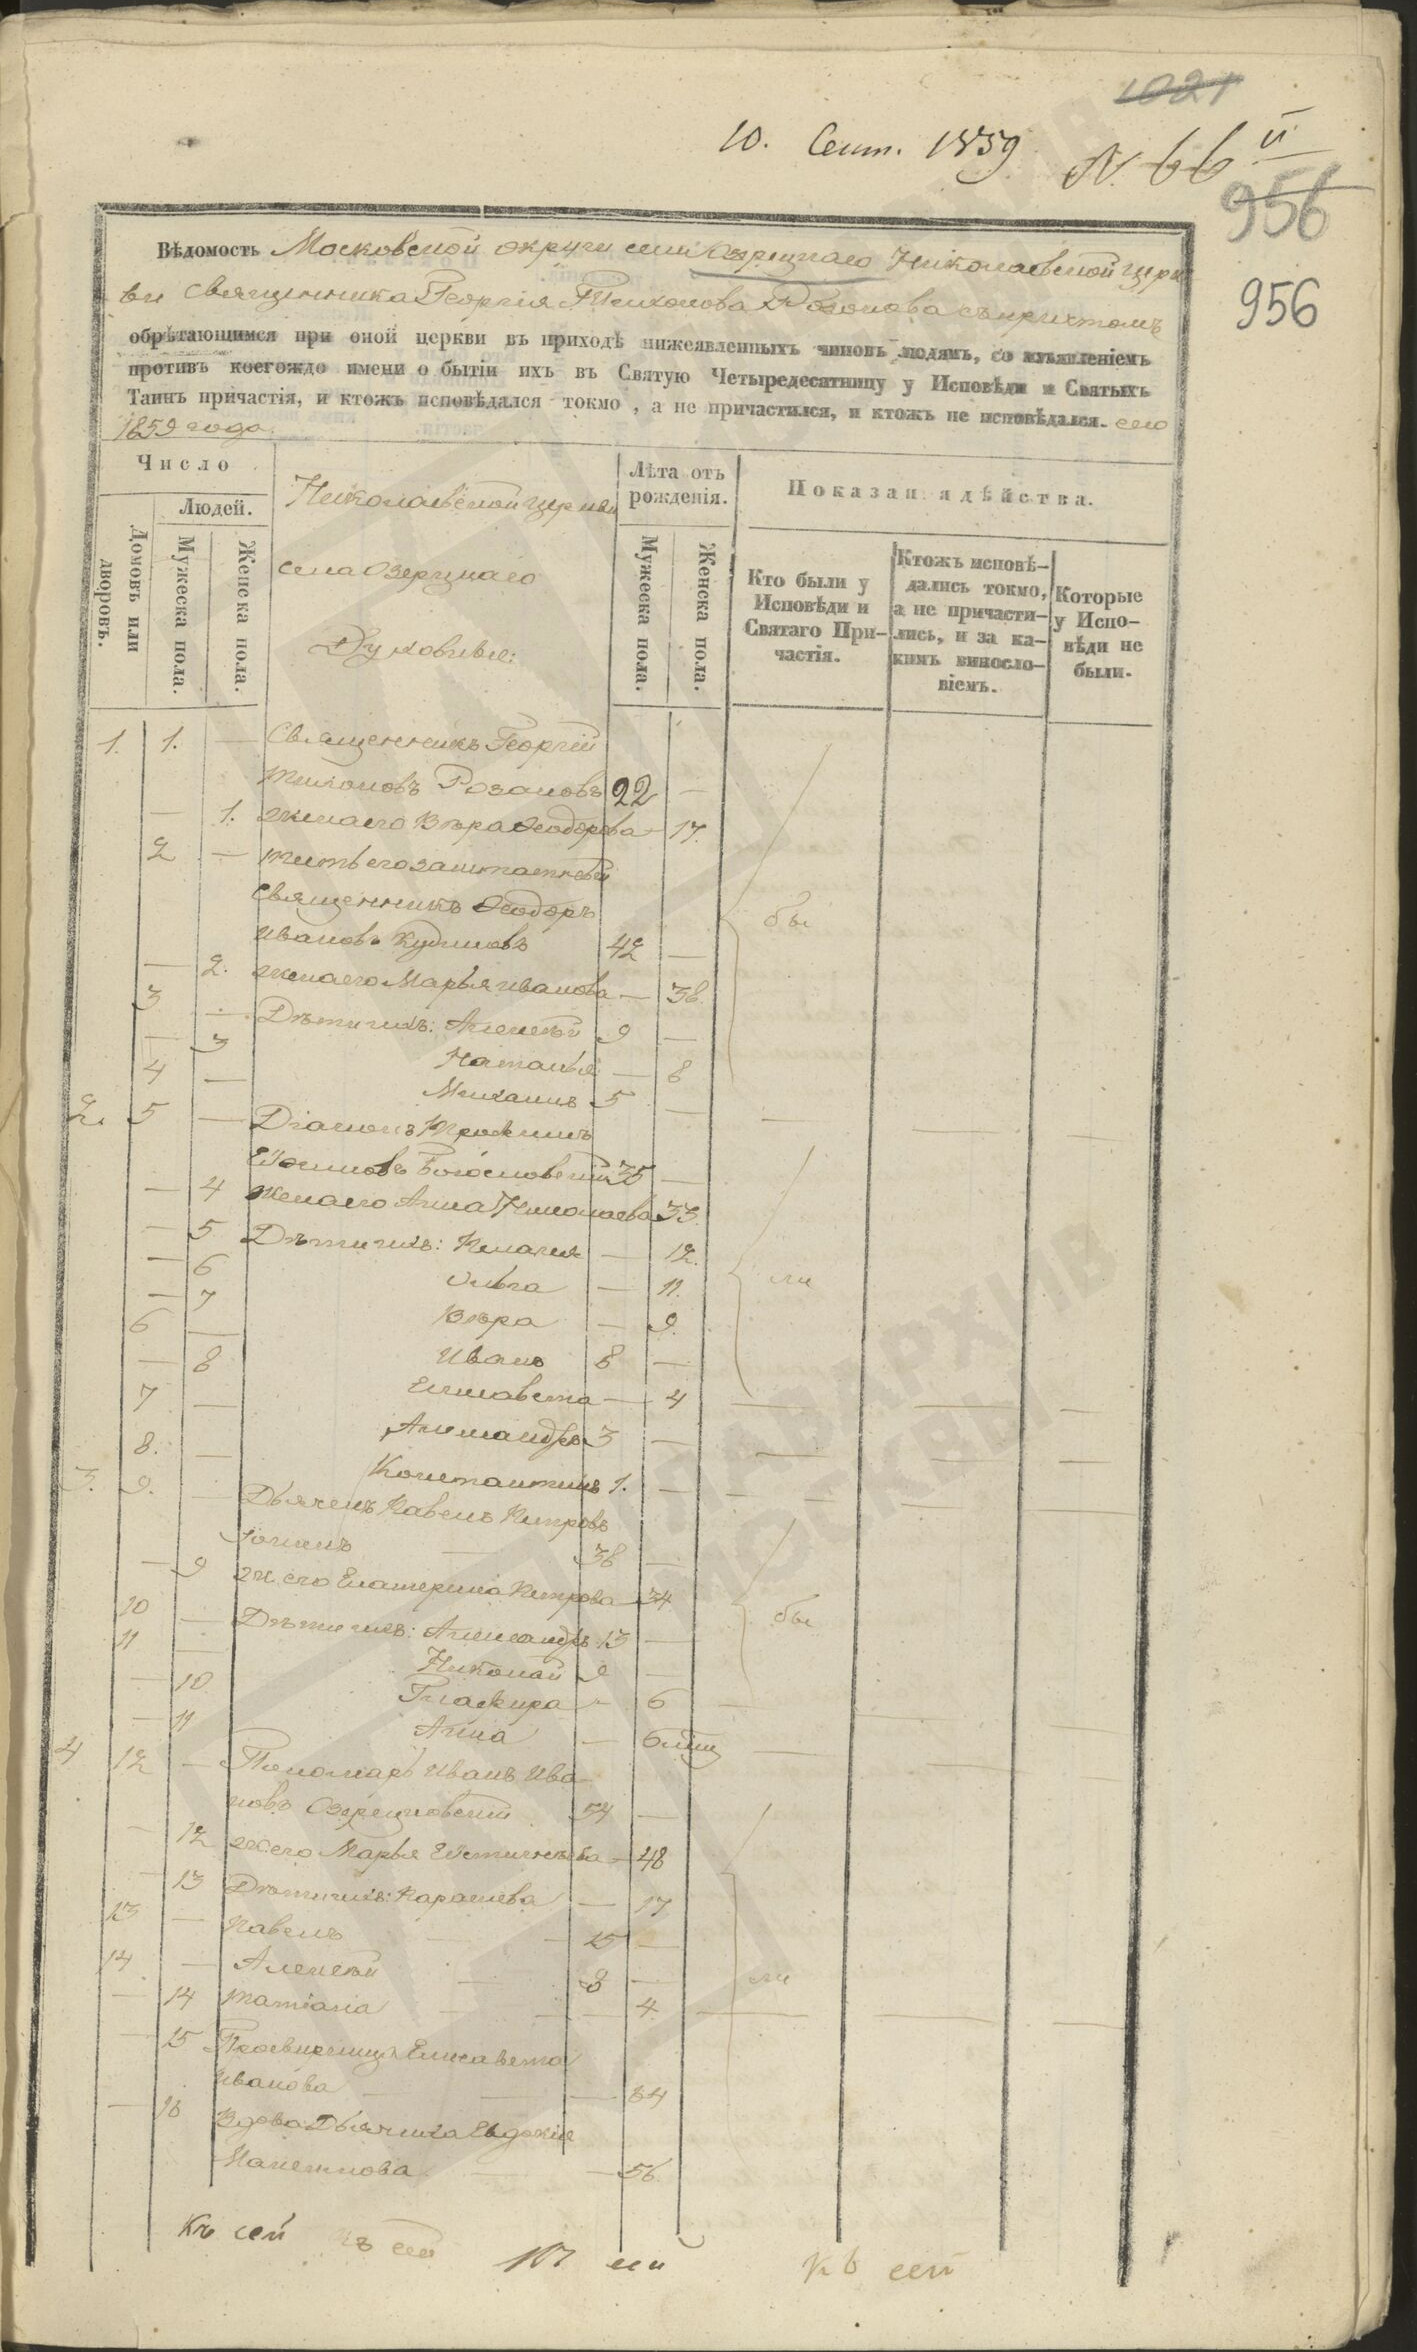 1021
10. Сент. 1859
N. 66
956
956
Вѣдомость Московской округи села Озерецкаго Николаевской церк
ви священника Георгія Тихонова Розонова съ причтомъ
обрѣтающимся при оной церкви въ приходѣ нижеявленныхъ чиновъ людямъ, со изъявленіемъ
противъ коегождо имени о бытіи ихъ въ Святую Четыредесятницу у Исповѣди и Святыхъ
Таинъ причастія, и ктожъ исповѣдался токмо, а не причастился, и ктожъ не исповѣдался. сего
1859 года.
Число
Людей.
Домовъ или дворовъ.
Мужеска пола.
Женска пола.
Николаевской церкви
села Озерецкаго
Духовные:
Лѣта отъ рожденія.
Мужеска пола.
Женска пола.
Показанія дѣйства.
Кто были у Исповѣди и Святаго Причастія.
Ктожъ исповѣ-
дались токмо,
а не причасти-
лись, и за ка-
кимъ винословіемъ.
Которые у Испо-
вѣди не были.
1. 1. — Священникъ Георгій
Тихоновъ Розановъ 22 —
— 1. жена его Вѣра Ѳеодорова — 17.
2 — тесть его заштатный
Священникъ Ѳеодоръ
Ивановъ 42 —
бы
— 2. жена его Марья Иванова — 38.
3 — Дѣти ихъ: Алексѣй 9 —
— 3 Наталья — 8
4 — Михаилъ 5 —
2. 5 — Діаконъ
Богословскій 35 —
— 4 жена его Анна Николаева 33.
— 5 Дѣти ихъ: — 12.
— 6 Ольга — 11.
ли
— 7 Вѣра — 9.
6 — Иванъ 8 —
— 8 Елисавета — 4
7 — Александръ 3 —
8. — Константинъ 1. —
3. 9. — Дьячекъ Павелъ Петровъ
38 —
— 9 ж. его Екатерина Петрова — 34
10 — Дѣти ихъ: Александръ 13 —
бы
11 — Николай 9 —
— 10 Глафира — 6
— 11 Анна — 6 мѣц
4 12 — Пономарь Иванъ Ива-
новъ Озерецковскій 54 —
— 12 ж. его Марья — 48
— 13 Дѣти ихъ: — 17
13 — Павелъ 15 —
14 — Алексѣй 8 —
ли
— 14 Татіана — 4.
— 15 Просвирница Елисавета
Иванова — 64
— 16 Вдова Дьячиха Евдокія
— 56.
Къ сей
къ сей
къ сей